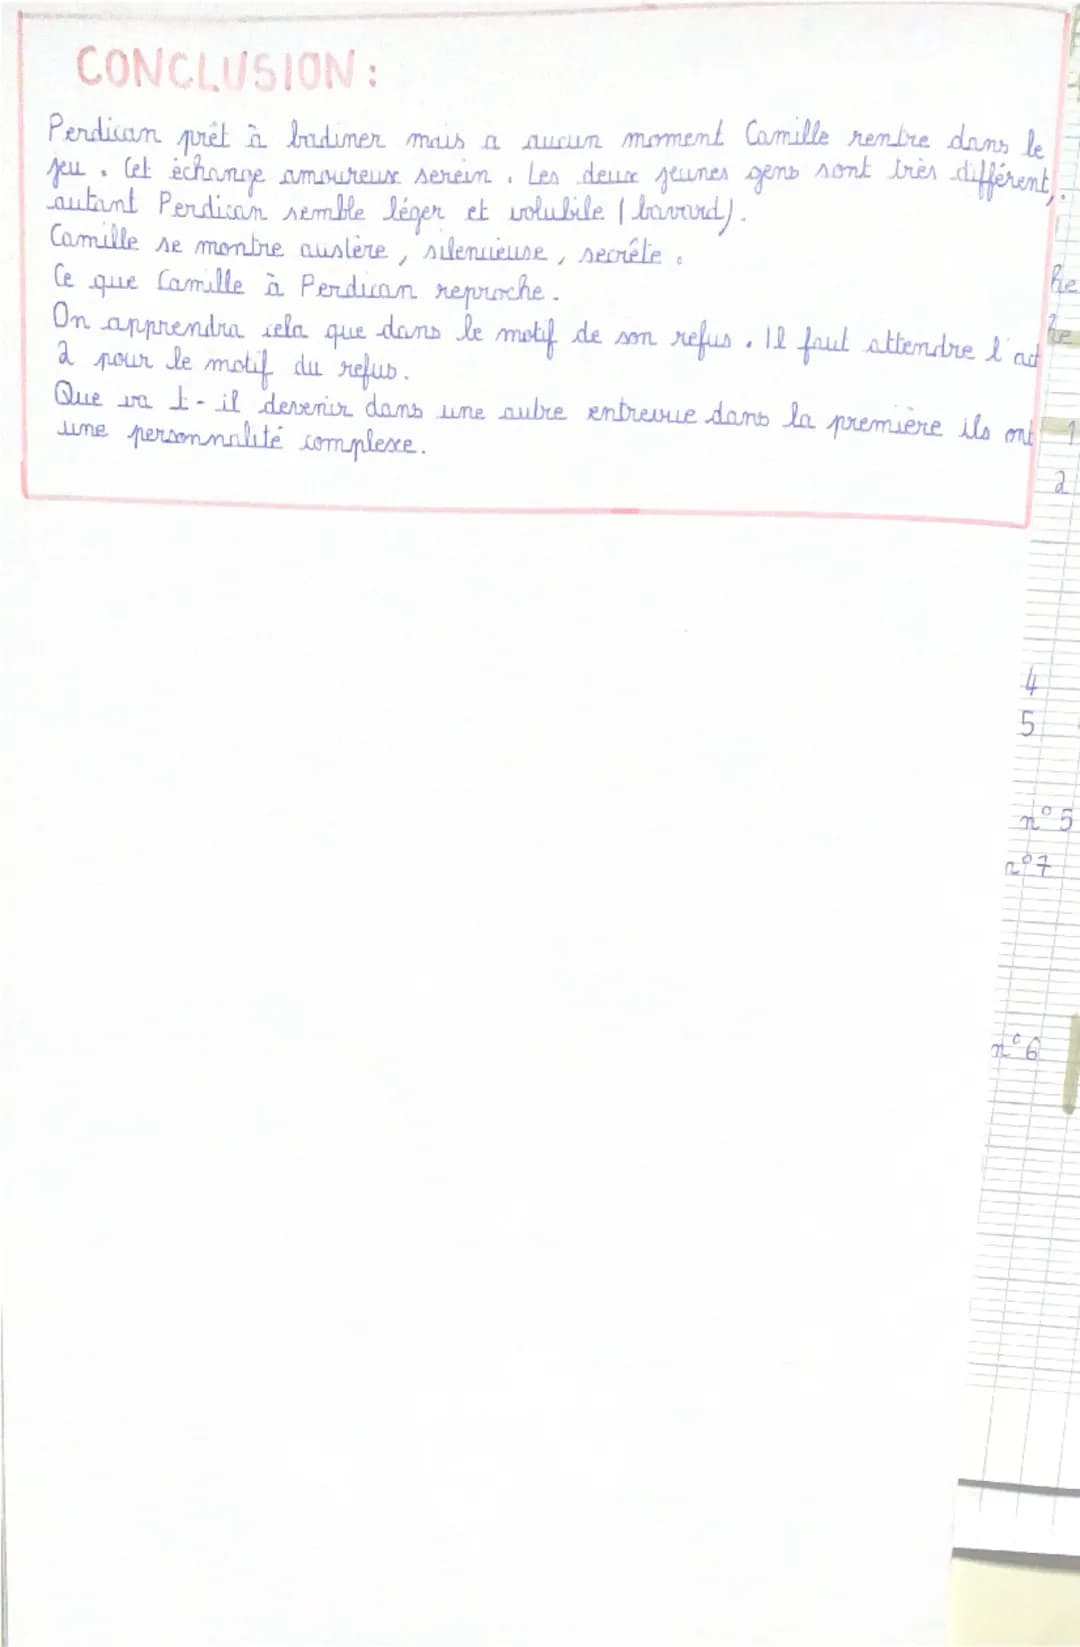 CONCLUSION :
Perdican prêt à badiner mais a aucun moment Camille rentre dans le
jeu . Cet échange amoureux serein . Les deux jeunes gens sont très différent,.
autant Perdican semble léger et volubile (bavard).
Camille se montre austère, silencieuse, secrête.
Ce que Camille à Perdican reproche.
On apprendra cela que dans le motif de son refus. Il faut attendre l'act
2 pour le motif du refus.
Que va t-il devenir dans une autre entrevue dans la première ils ont
une personnalité complexe.
he
he
1
2
4
5
n°5
n°7
n°6